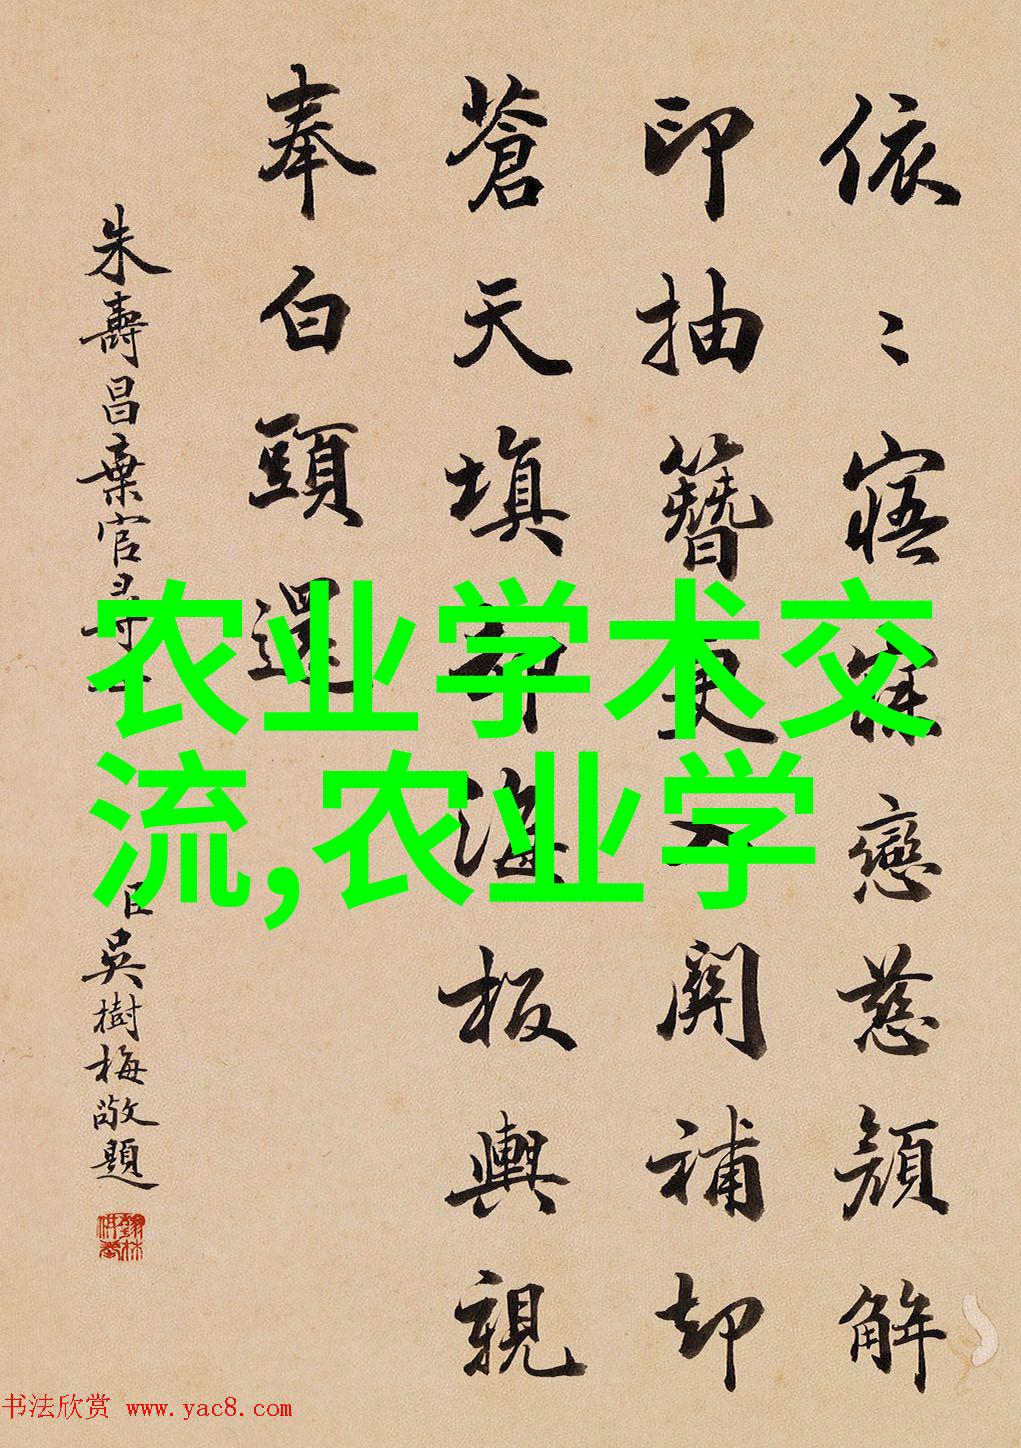 依〻寤寐戀慈顔解
印抽簪更入關補却
蒼天填却海板輿親
奉白頭還
朱壽昌棄官尋
臣吳樹梅敬題
农业学术交
流,农业学
书法欣赏 www.yac8.com